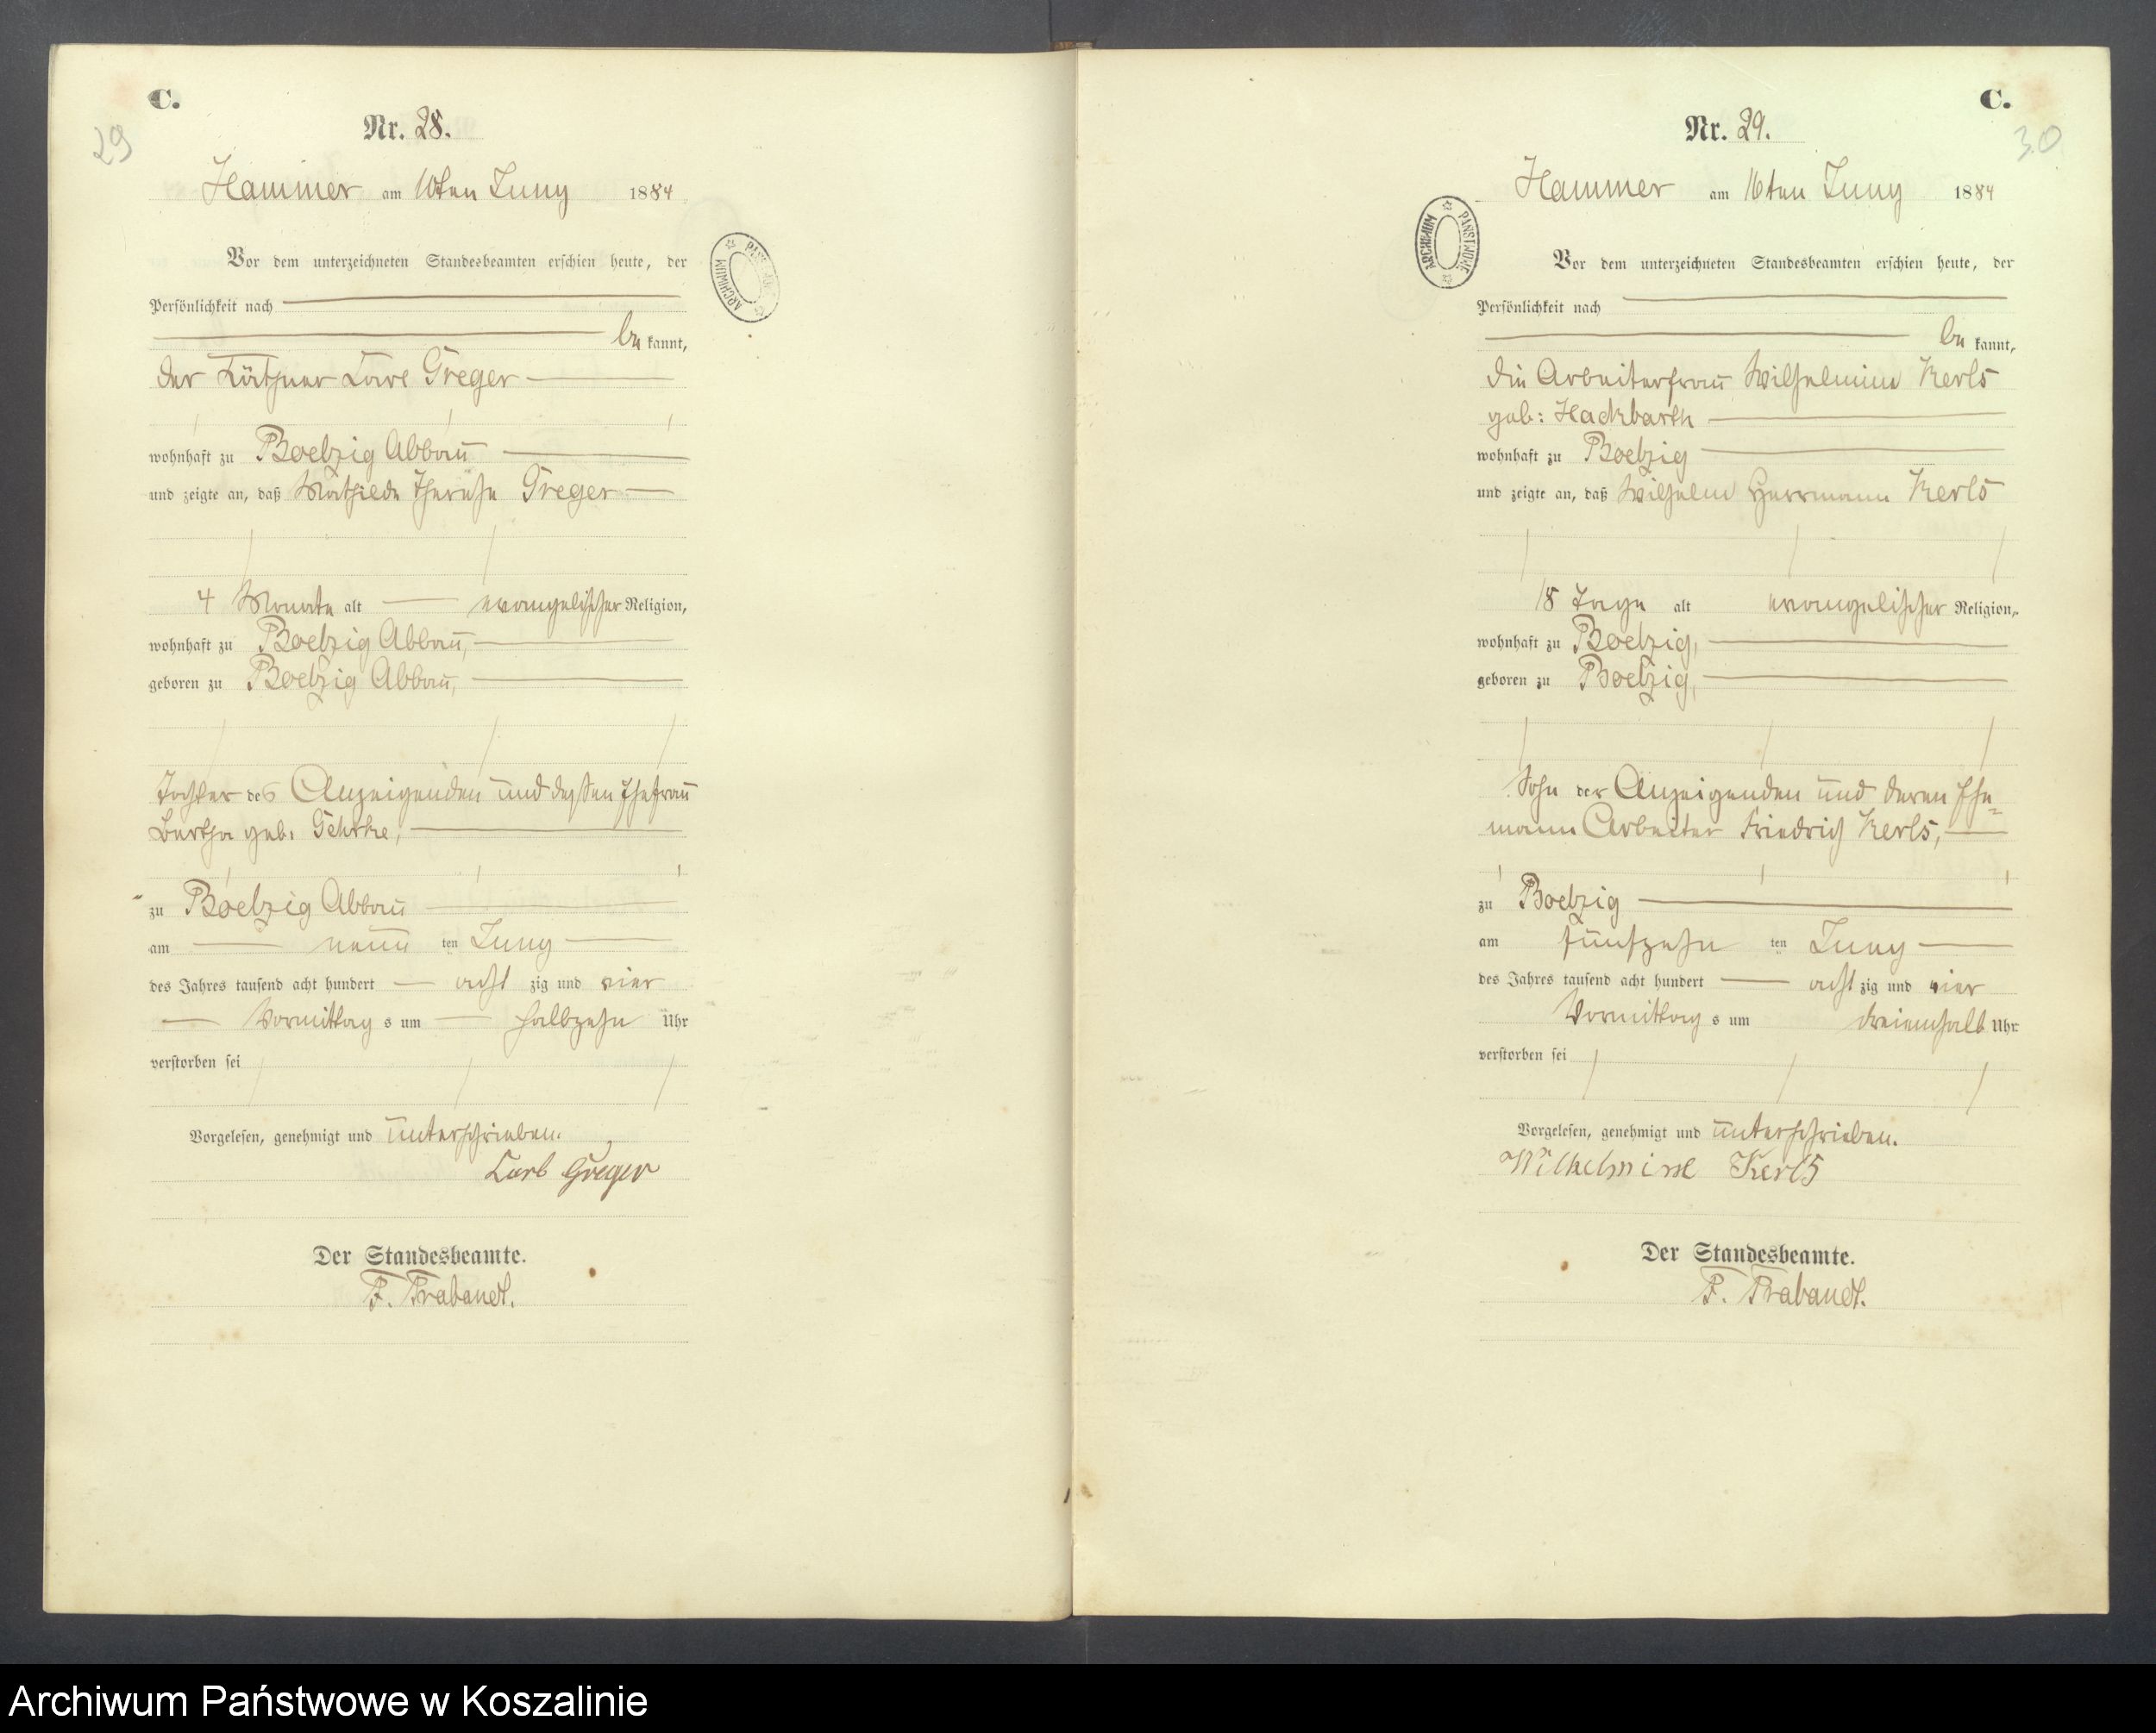 C.
29
Nr. 28.
Hammer am 10ten Juny 1884
Vor dem unterzeichneten Standesbeamten erschien heute, der
Persönlichkeit nach
be kannt,
der Käthner Carl Greger
wohnhaft zu Boetzig Abbau
und zeigte an, daß Mathilde Therese Greger
4 Monate alt evangelischer Religion,
wohnhaft zu Boetzig Abbau,
geboren zu Boetzig Abbau,
Tochter des Anzeigenden und dessen Ehefrau
Bertha geb: Gehrke,
zu Boetzig Abbau
am neun ten Juny
des Jahres tausend acht hundert acht zig und vier
Vormittag s um halbzehn Uhr
verstorben sei
Vorgelesen, genehmigt und unterschrieben.
Carl Greger
Der Standesbeamte.
F. Trabandt.
ARCHIWUM
C.
30
Nr. 29.
Hammer am 16ten Juny 1884
Vor dem unterzeichneten Standesbeamten erschien heute, der
Persönlichkeit nach
be kannt,
die Arbeiterfrau Wilhelmine Kerls
geb: Hackbarth
wohnhaft zu Boetzig
und zeigte an, daß Wilhelm Herrmann Kerls
18 Tage alt evangelischer Religion,
wohnhaft zu Boetzig,
geboren zu Boetzig,
Sohn der Anzeigenden und deren Ehe=
mann Arbeiter Friedrich Kerls,
zu Boetzig
am fünfzehn ten Juny
des Jahres tausend acht hundert acht zig und vier
Vormittag s um dreieinhalb Uhr
verstorben sei
Vorgelesen, genehmigt und unterschrieben.
Wilhelmine Kerls
Der Standesbeamte.
F. Trabandt.
ARCHIWUM PAŃSTWOWE
Archiwum Państwowe w Koszalinie